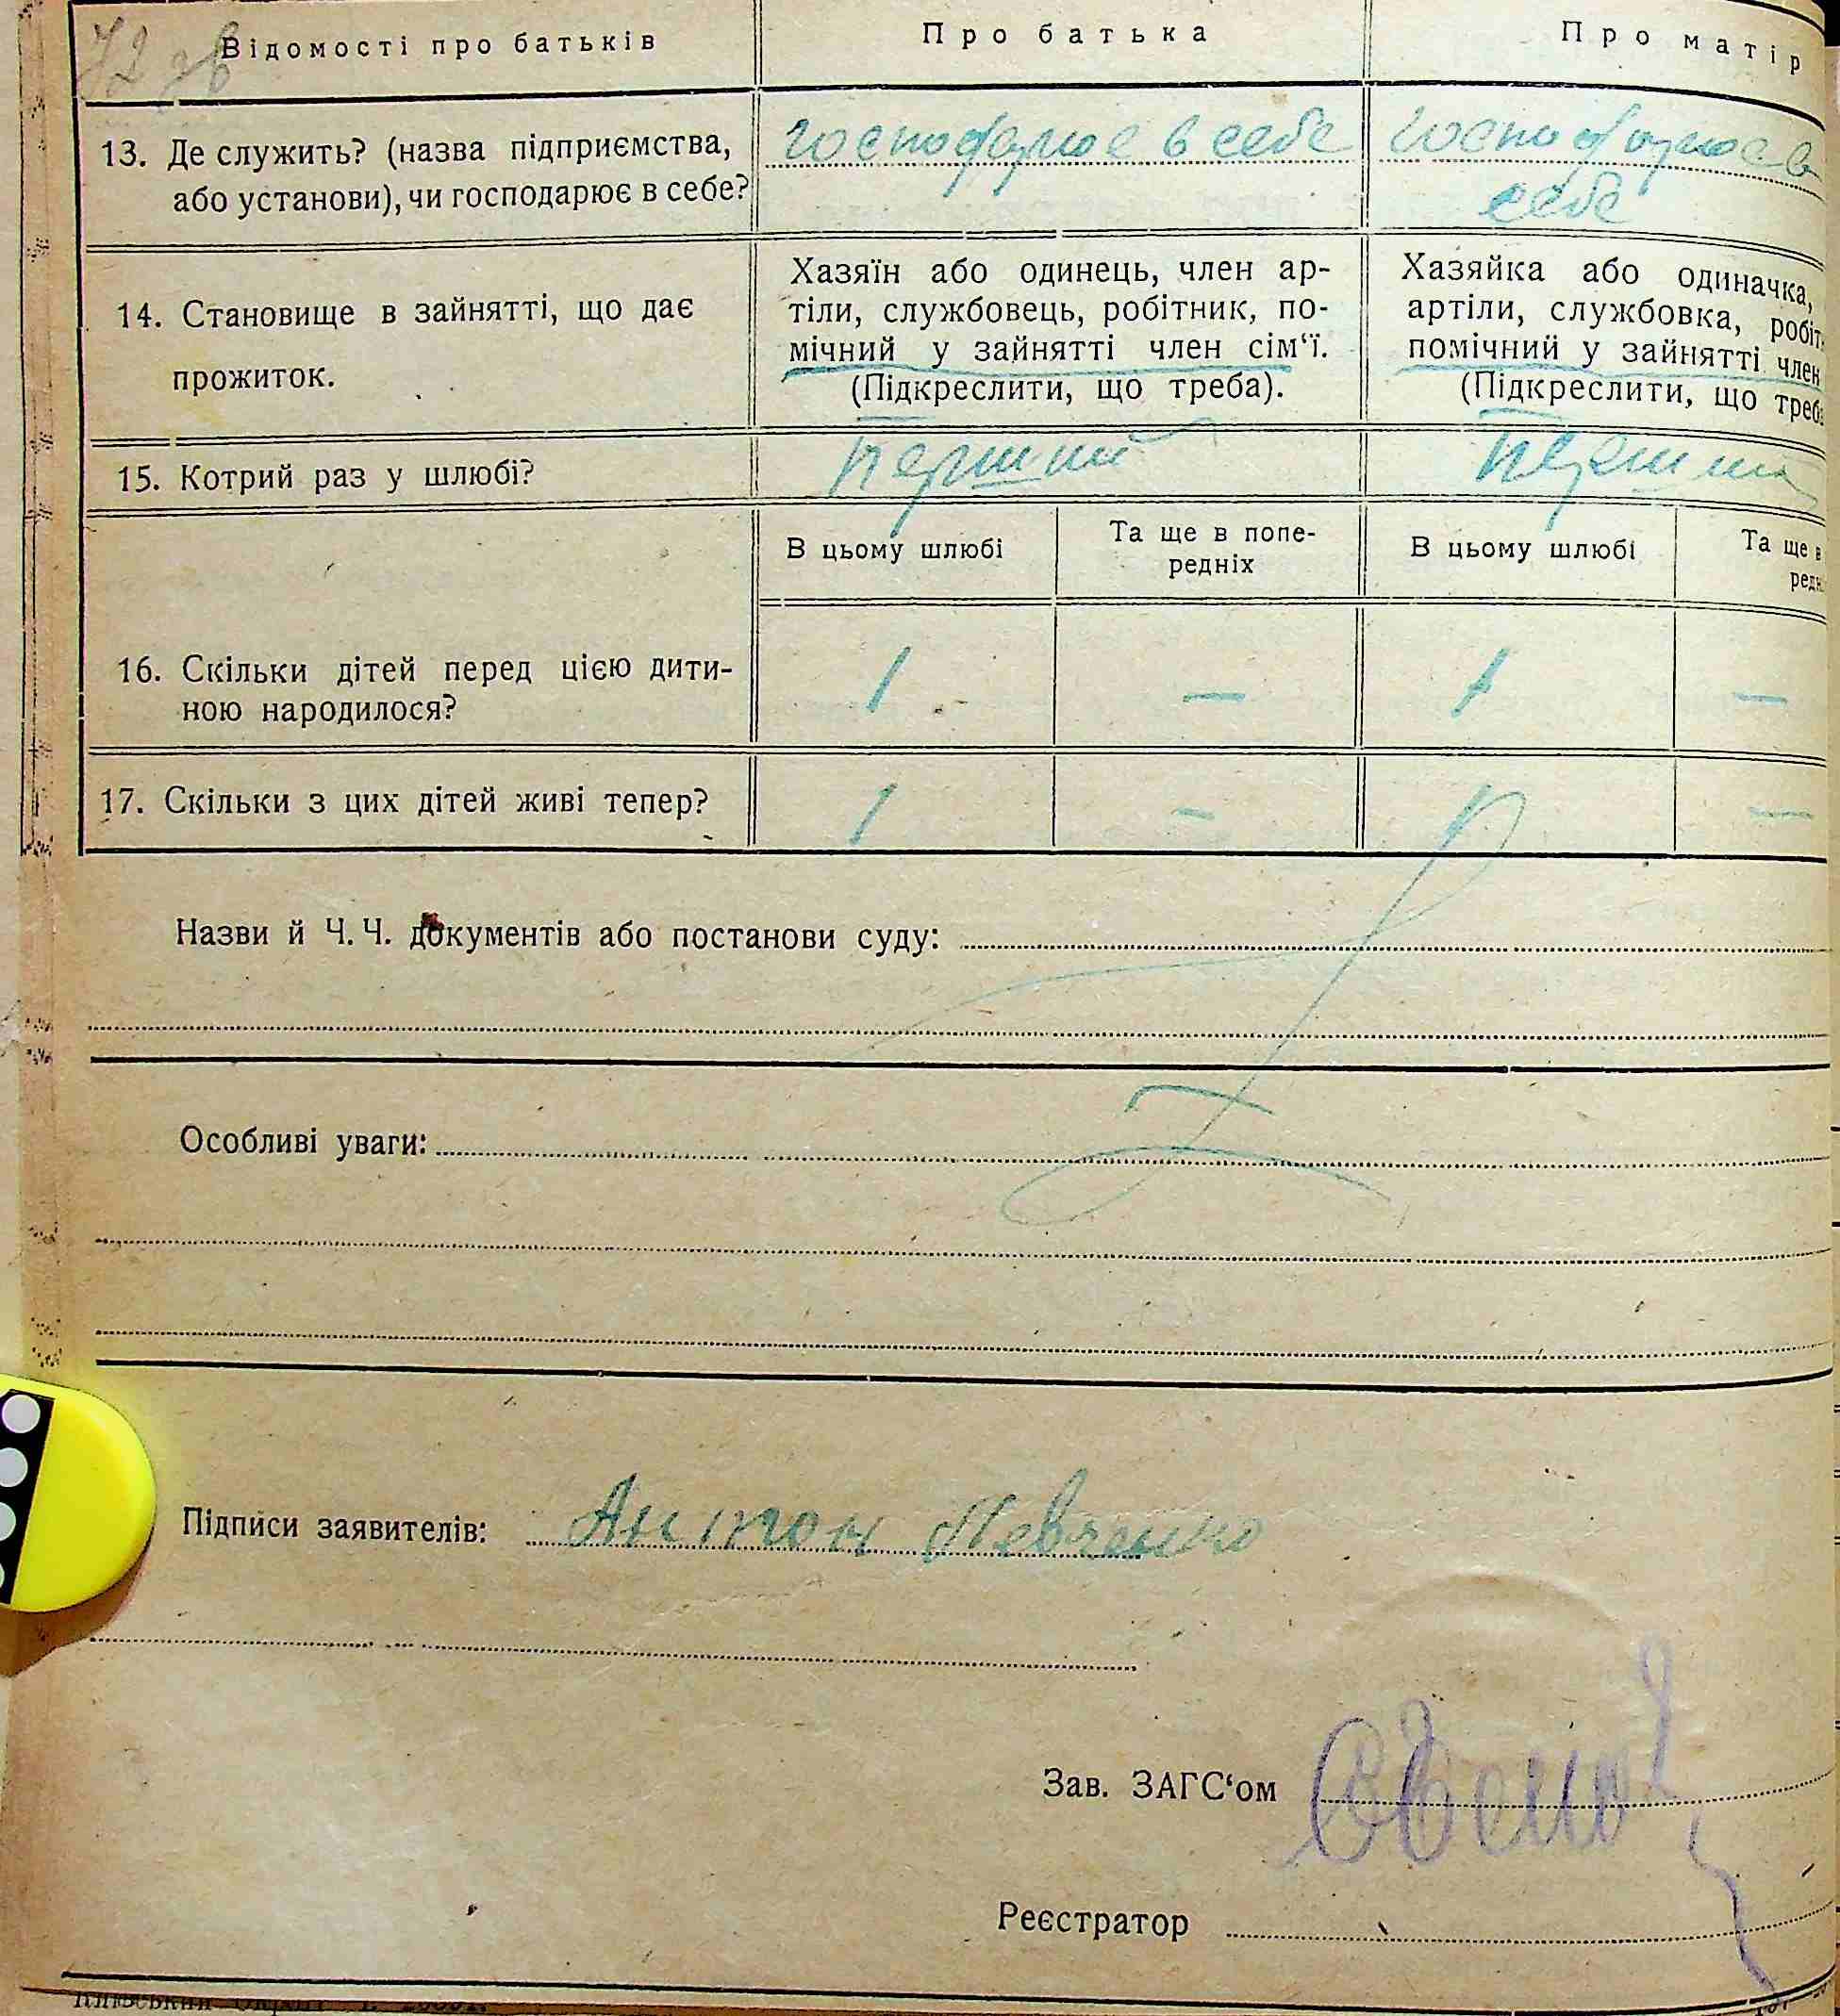 72 зв
Відомості про батьків
Про батька
Про матір
13. Де служить? (назва підприємства,
або установи), чи господарює в себе?
господарює в себе
господарює в
себе
14. Становище в зайнятті, що дає
прожиток.
Хазяїн або одинець, член ар-
тіли, службовець, робітник, по-
мічний у зайнятті член сім‘ї.
(Підкреслити, що треба).
Хазяйка або одиначка,
артіли, службовка, робіт
помічний у зайнятті член
(Підкреслити, що треба
15. Котрий раз у шлюбі?
перший
перши
В цьому шлюбі
Та ще в попе-
редніх
В цьому шлюбі
Та ще в
редн
16. Скільки дітей перед цією дити-
ною народилося?
1
—
1
—
17. Скільки з цих дітей живі тепер?
1
—
1
—
Назви й Ч. Ч. документів або постанови суду:
Особливі уваги:
Підписи заявителів: Антон Певченко
Зав. ЗАГС‘ом
Реєстратор